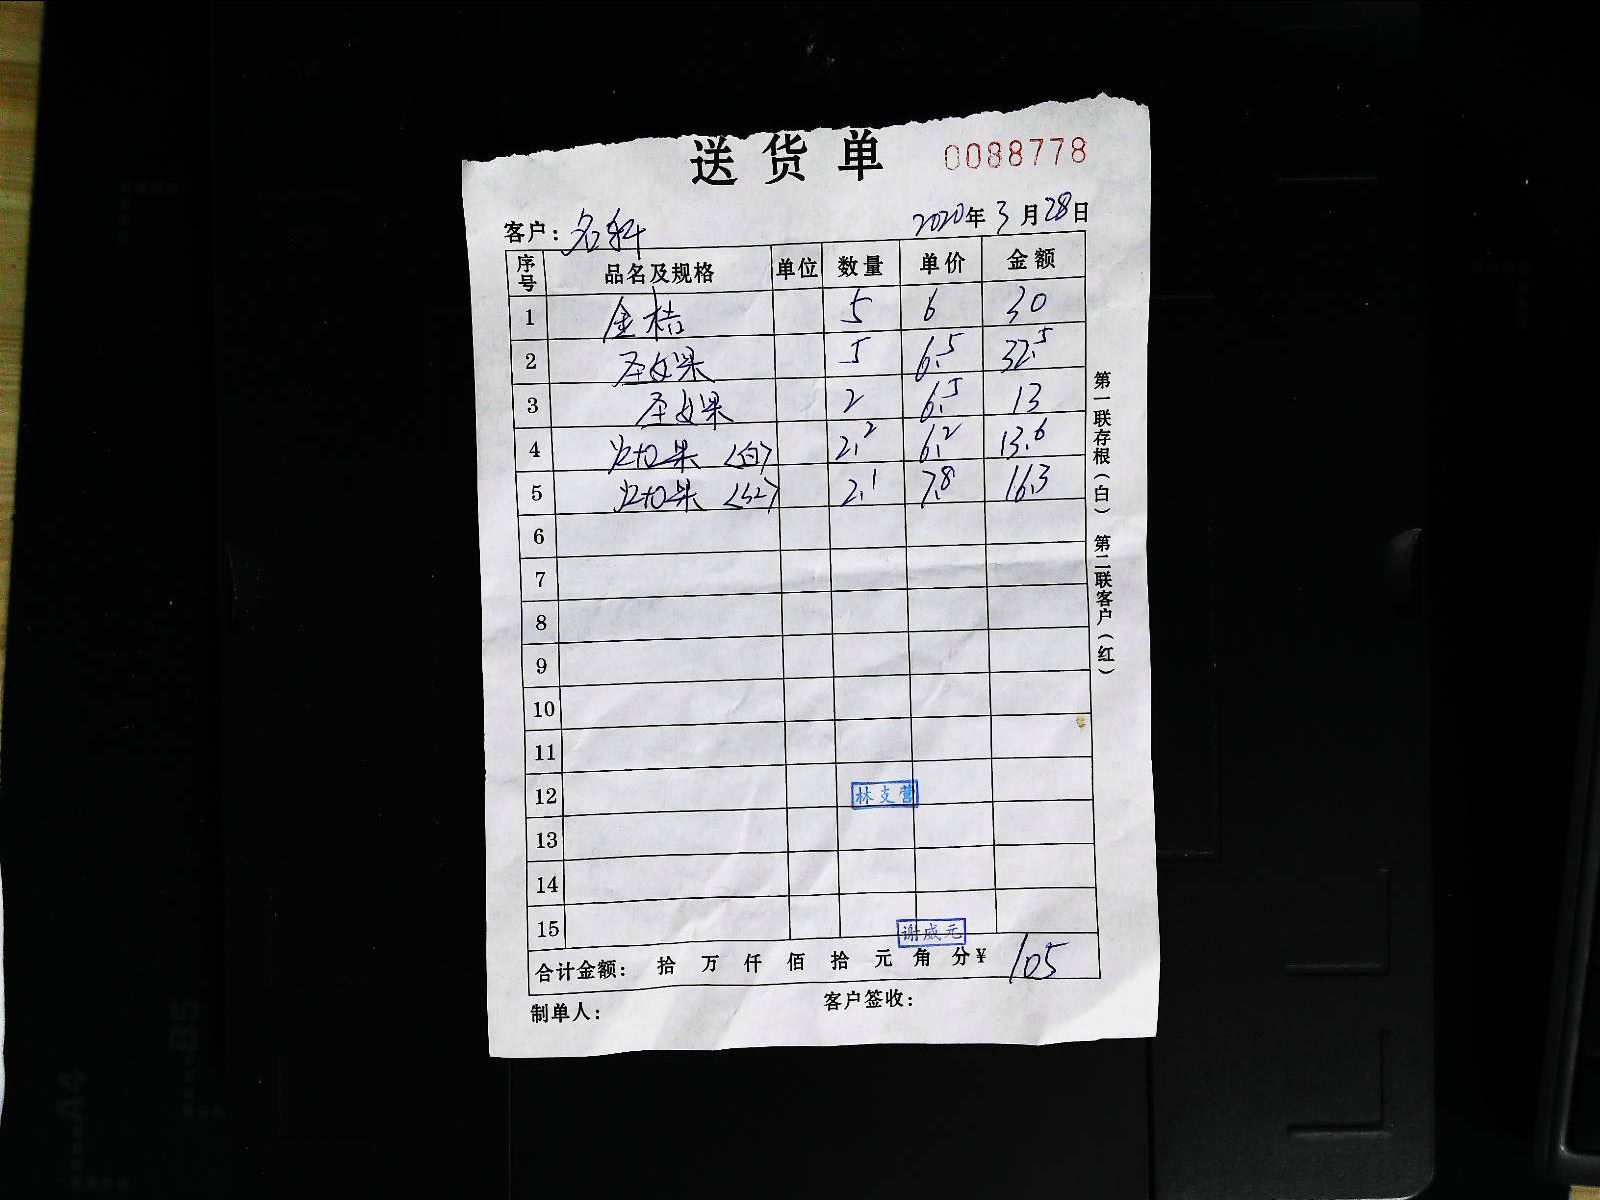 送货单 0088778
客户：名科 2020年3月28日
序号 品名及规格 单位 数量 单价 金额
1 金桔 5 6 30
2 圣女果 5 6.5 32.5
3 圣女果 2 6.5 13
4 火龙果（白） 2.2 6.2 13.6
5 火龙果（红） 2.1 7.8 16.3
6
7
8
9
10
11
12 林支营
13
14
15 谢威元
合计金额： 拾 万 仟 佰 拾 元 角 分¥ 105
制单人： 客户签收：
第一联存根（白） 第二联客户（红）
A4
B5